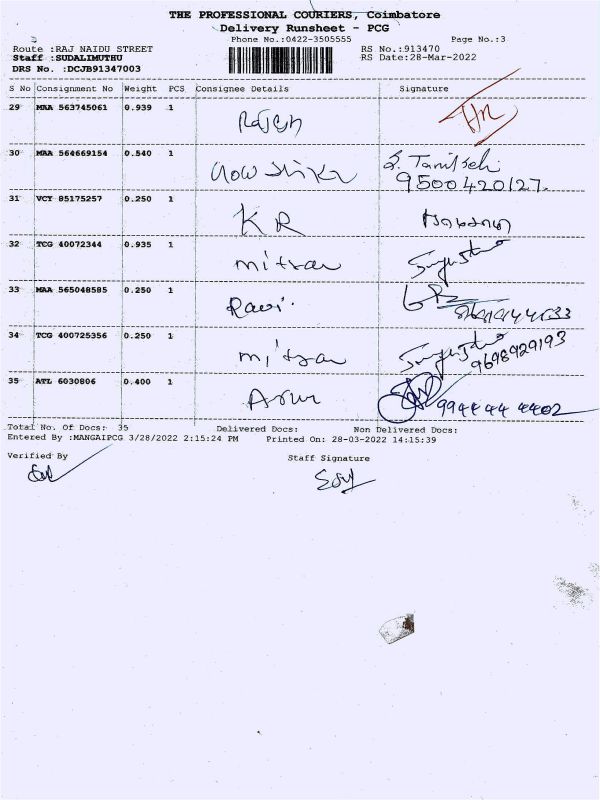 THE PROFESSIONAL COURIERS, Coimbatore
Delivery Runsheet - PCG
Phone No.:0422-3505555 Page No.:3
Route :RAJ NAIDU STREET RS No.:913470
Staff :SUDALIMUTHU RS Date:28-Mar-2022
DRS No. :DCJB91347003
S No Consignment No Weight PCS Consignee Details Signature
29 MAA 563745061 0.939 1
Rajesh
30 MAA 564669154 0.540 1
9500420127.
31 VCY 85175257 0.250 1
KR
32 TCG 40072344 0.935 1
mitran
33 MAA 565048585 0.250 1
Ravi.
34 TCG 400725356 0.250 1
mitran 9698929193
35 ATL 6030806 0.400 1
Arun 9944 44 4402
Total No. Of Docs: 35 Delivered Docs: Non Delivered Docs:
Entered By :MANGAIPCG 3/28/2022 2:15:24 PM Printed On: 28-03-2022 14:15:39
Verified By Staff Signature